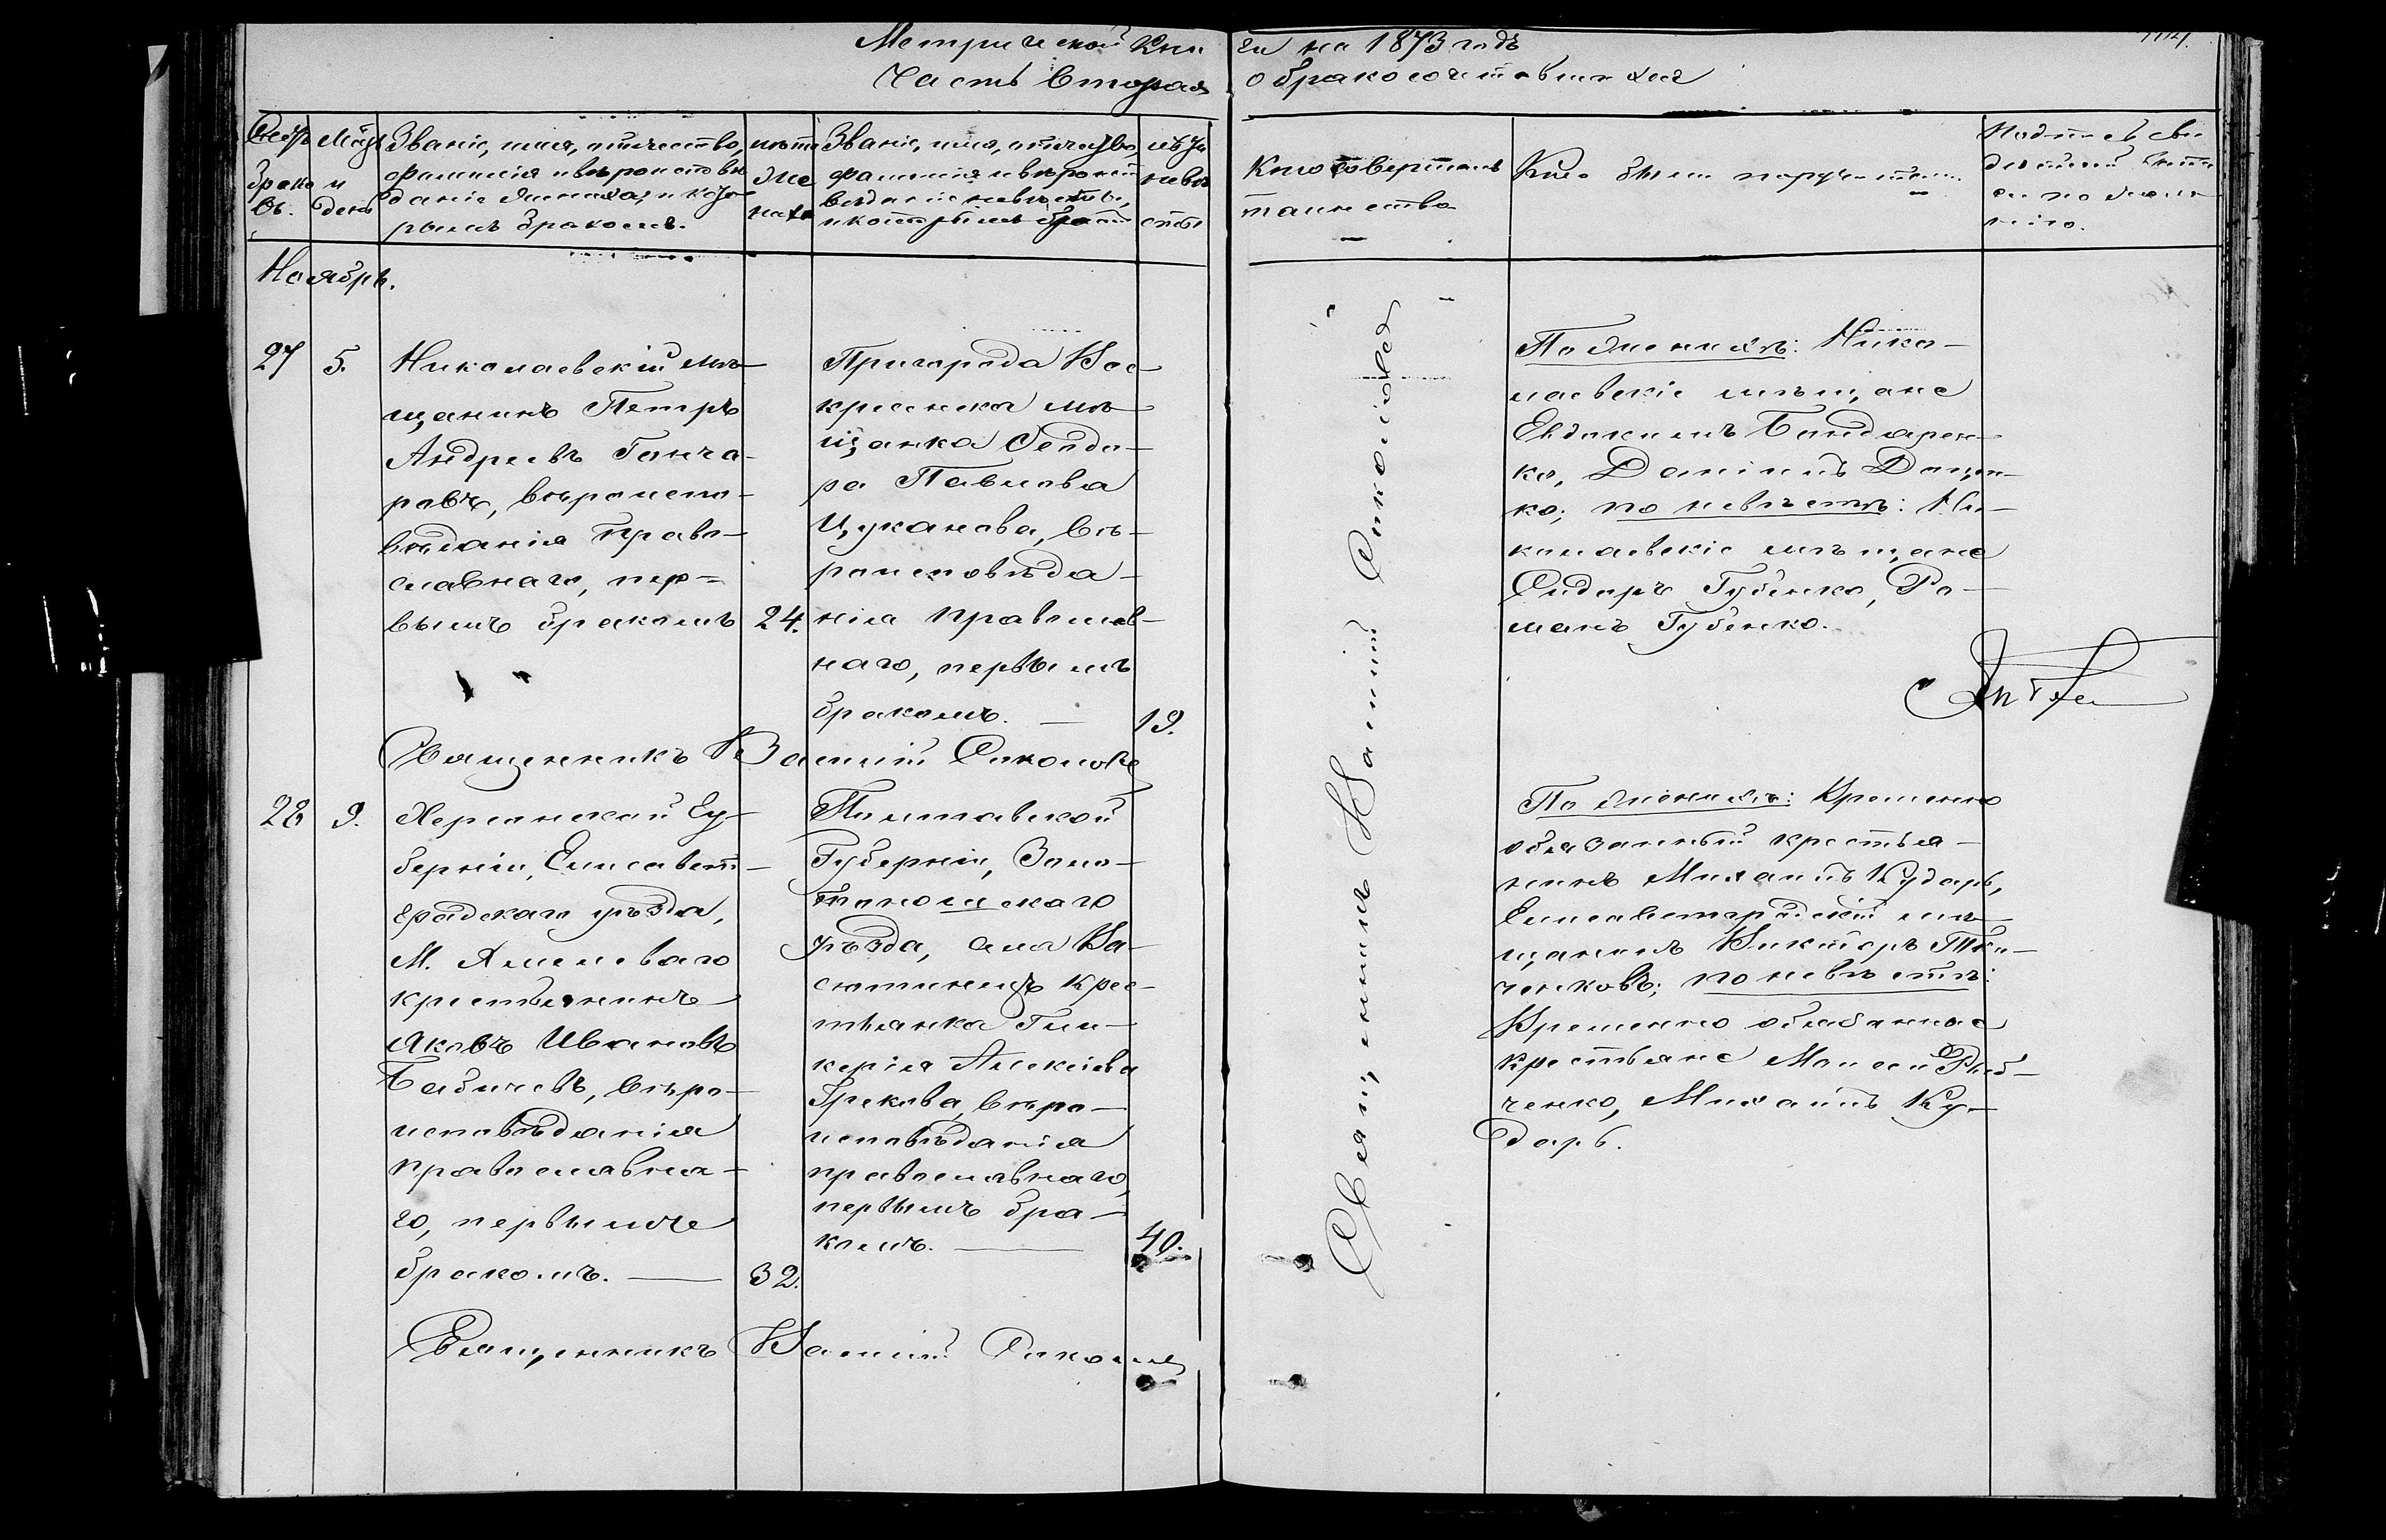 Метрической Кни ги на 1873 годъ
Часть Вторая о бракосочетавшихся
бра-
ко
въ.
Мсцъ
и
день
Званіе, имя, отчество,
фамилія и вѣроисповѣ
даніе жениха, и кото-
рымъ бракомъ.
лѣта
же
ниха
Званіе, имя, отчество,
фамилія и вѣроисп
вѣданіе невѣсты,
и которымъ брак
лѣта
невѣ
сты
Кто совершалъ
таинство
Кто были поручители
Подпись сви
дѣтелей
по жела
нію.
Ноябрь.
27
5.
Николаевскій мѣ-
щанинъ Петръ
Андреевъ Ганча-
ровъ, вѣроиспо-
вѣданія Право-
славнаго, пер-
вымъ бракомъ
24.
Пригорода Вос-
кресенска мѣ-
щанка Феодо-
ра Павлова
Цуканова, вѣ-
роисповѣда-
нія православ-
наго, первымъ
бракомъ. —
19.
Священникъ Василій Соколовъ
Священникъ Василій Соколовъ
По женихѣ: Нико-
лаевскіе мѣщане
Евдокимъ Бондарен-
ко, Даніилъ Доцен-
ко; по невѣстѣ: Ни-
колаевскіе мѣщане
Сидоръ Губенко, Ро-
манъ Губенко.
28
9.
Херсонской Гу-
берніи, Елисавет-
градскаго уѣзда,
М.
крестьянинъ
Яковъ Ивановъ
Бабичевъ, вѣро-
исповѣданія
православна-
го, первымъ
бракомъ. —
32.
Полтавской
Губерніи, Золо-
тоношскаго
уѣзда, села Ва-
сютинецъ крес-
тьянка Гли-
керія Алексѣева
Грекова, вѣро-
исповѣданія
православнаго,
первымъ бра-
комъ. —
40.
По женихѣ: Временно
обязанный крестья-
нинъ Михаилъ Кударь,
Елисаветградскій мѣ-
щанинъ Викторъ Тка-
ченковъ; по невѣстѣ:
Временно обязанные
крестьяне Моисей Ряб-
ченко, Михаилъ Ку-
дарь.
Священникъ Василій Соколовъ